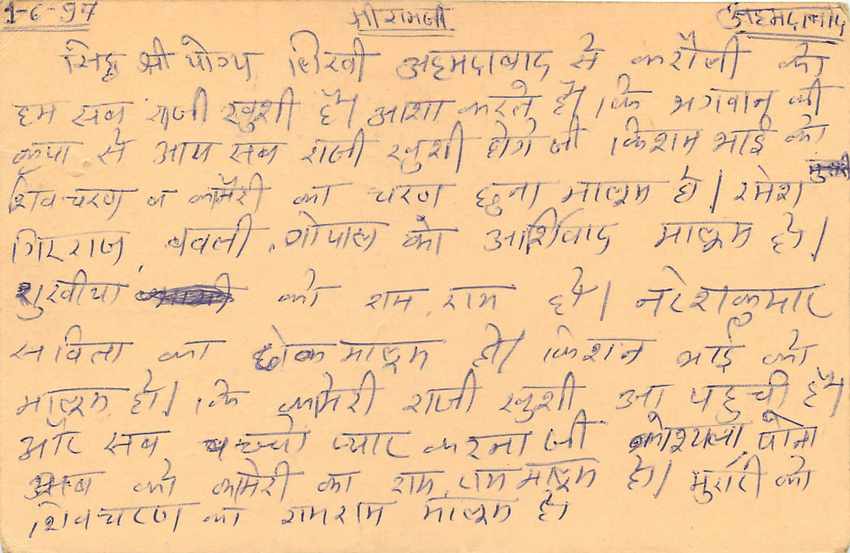 1-6-97 श्री रामजी अहमदाबाद
सिद्ध श्री योग्य लिखी अहमदाबाद से करौली को
हम सब राजी खुशी है। आशा करते है। कि भगवान की
कृपा से आप सब राजी खुशी होगे जी किशन भाई को
शिवचरण व कमैरी का चरण छुना मालूम हो। रमेश
गिरराज, बबली, गोपाल को आर्शिवाद मालूम हो।
सुखीया को राम, राम है। नरेशकुमार
सविता का ढोक मालूम हो। किशन भाई को
मालूम हो। कि कमेरी राजी खुशी आ पहुची है।
और सब बच्चो प्यार करना जी कोशल्या, पोना
सब को कमेरी का राम, राम मालूम हो। मुरारी को
शिवचरण का रामराम मालूम हो